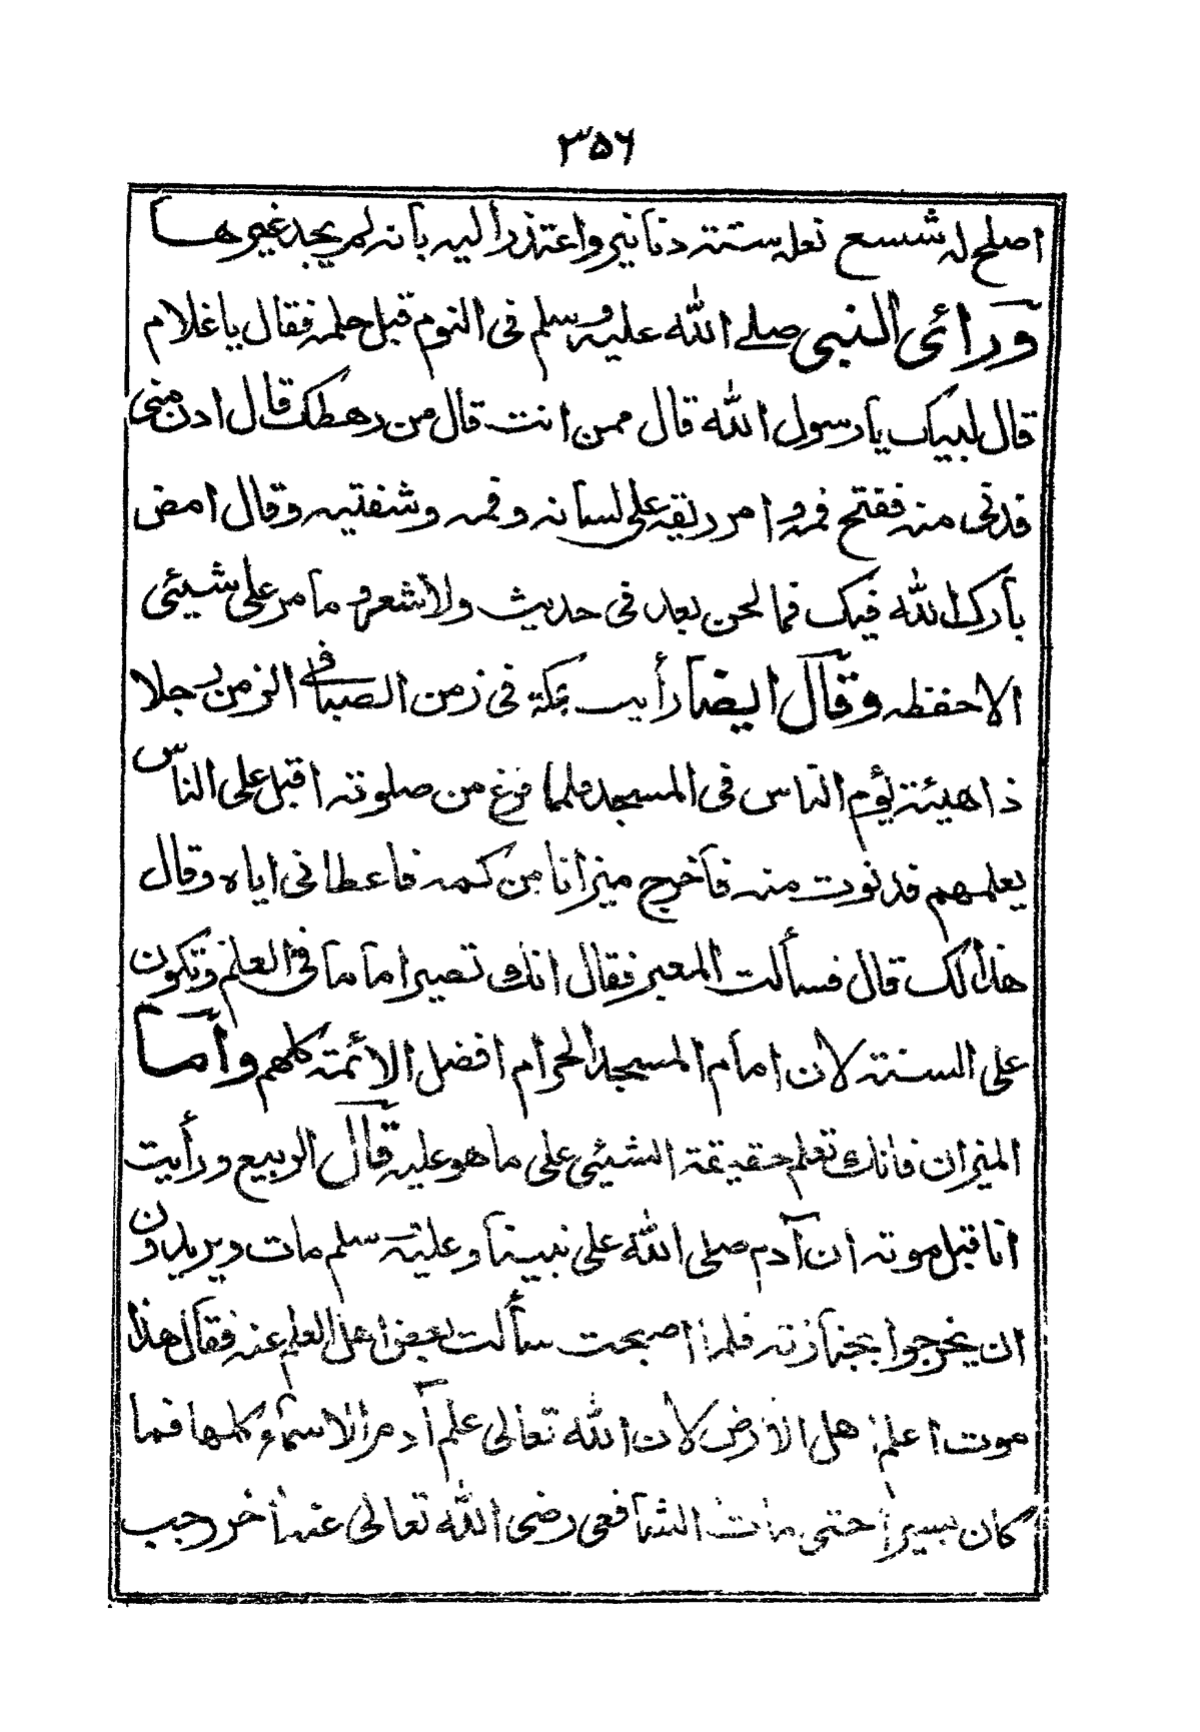 ٣٥٦
اصلح له شسع نعله ستة دنانير واعتذر اليه بانه لم يجد غيرها
ورائى النبى صلے الله عليه وسلم فى النوم قبل حلمه فقال يا غلام
قال لبيك يا رسول الله قال ممن انت قال من رهطك قال ادن منى
فدنى منه ففتح فمه و امر ريقه على لسانه و فمه و شفتيه وقال امض
بارك الله فيك فما لحن بعد فى حديث ولا شعر و ما مر على شيئى
الا حفظه وقال ايضا رأيت بمكة فى زمن الصبا فى الزمن رجلا
ذا هيئة يؤم الناس فى المسجد فلما فرغ من صلوته اقبل على الناس
يعلمهم فدنوت منه فاخرج ميزانا من كمه فاعطانى اياه وقال
هذا لك قال فسألت المعبر فقال انك تصير اماما فى العلم وتكون
على السنة لان امام المسجد الحرام افضل الائمة كلهم واما
الميزان فانك تعلم حقيقة الشيئى على ما هو عليه قال الربيع ورأيت
انا قبل موته ان آدم صلى الله على نبينا وعليه سلم مات ويريدون
ان يخرجوا بجنازته فلما اصبحت سألت بعض اهل العلم عنه فقال هذا
موت اعلم اهل الارض لان الله تعالى علم آدم الاسماء كلها فما
كان يسيرا حتى مات الشافعى رضى الله تعالى عنه أخر رجب